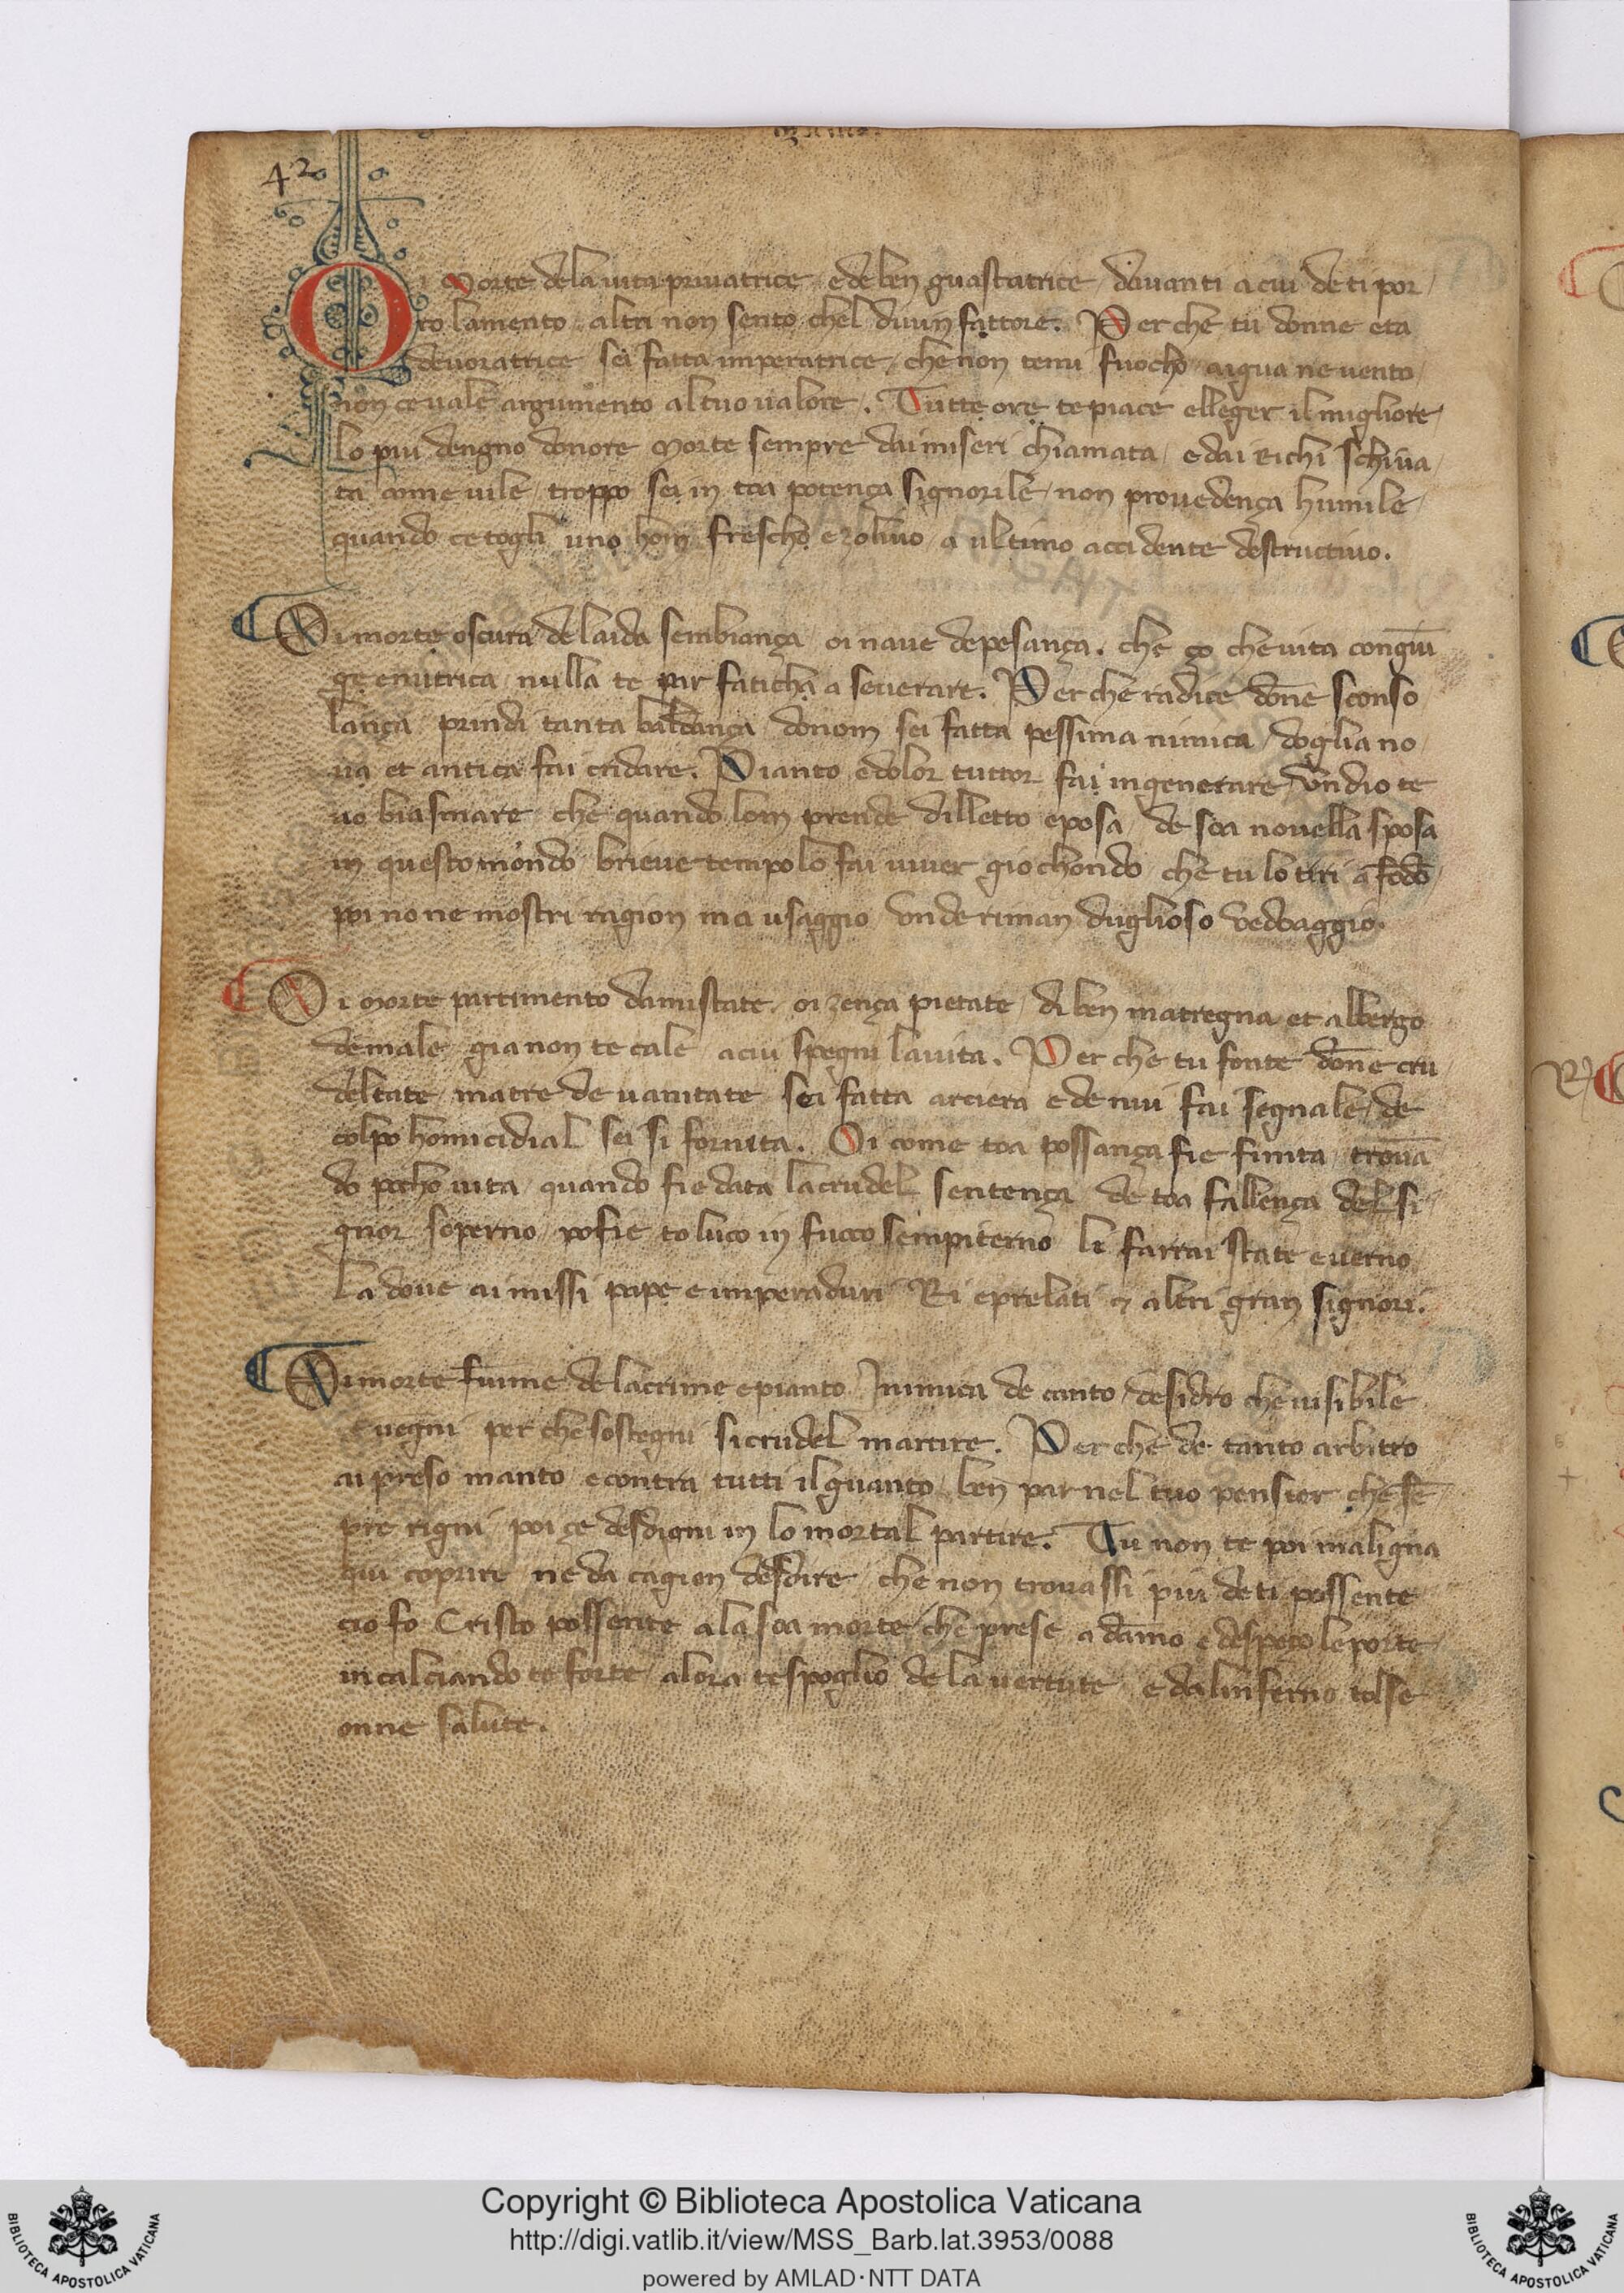 42
Oi Morte dela vita privatrice / e de ben guastatrice / davanti a cui de ti por /
to lamento / altri non sento chel divin fattore. Per che tu donne eta
devoratrice sei fatta imperatrice / che non temi fuocho aigua ne vento /
non ce vale argumento al tuo valore. Tutte ore te piace elleger il migliore /
Lo piu dengno donore Morte sempre dai miseri chiamata / e dai Richi schiva /
ta come vile / troppo sei in toa potença signorile / non provedença humile /
quando ce togli uno hom frescho e zolivo / a ultimo accidente destructivo.
Oi morte oscura de laida sembiança / oi nave de pesança. che ço che vita congiũ
ge e nutrica / nulla te par faticha a severare. Perche radice dõne sconso
lança prindi tanta baldança / donom sei fatta pessima nimica / doglia no /
va et antica fai cridare. Pianto e dolor tuttor fai ingenerare Vndio te
vo biasmare / che quando lom prende dilletto e posa / de soa novella sposa
in questo mondo brieve tempo lo fai viver giochondo / che tu lo tiri a fõdo /
poi no ne mostri ragion ma usaggio / unde riman duglioso vedvaggio.
Oi Morte partimento damistate / oi zença pietate / di ben matregna et albergo
de male / gia non te cale / a cui spegni la vita. Per che tu fonte dõne cru
deltate / matre de vanitate sei fatta arciera e de nui fai segnale / de
colpo homicidial sei si fornita. Oi come toa possança fie finita / trovã
do pocho vita / quando fie data la crudel sentença de toa fallença del si
gnor soperno / po fie to luco in fuoco sempiterno li farrai state e verno
La dove ai missi pape e imperaduri Ri e prelati & altri gran signori.
Oi morte fiume de lacrime e pianto / Inimica de canto / desidro che visibile
e vegni per che sostegni si crudel martire. Per che de tanto arbitro
ai preso manto / e contra tutti il guanto / ben par nel tuo pensier che sẽ
pre rigni / poi ce desdigni in lo mortal partire. Tu non te poi maligna
qui coprire ne da cagion desdire / che non trovassi piu de ti possente
cio fo Cristo possente a la soa morte / che prese adãmo e despeço le porte
incalciando te forte / alora te spoglio de la vertute / e dalinferno tolse
onne salute.
R)
Copyright © Biblioteca Apostolica Vaticana
http://digi.vatlib.it/view/MSS_Barb.lat.3953/0088
powered by AMLAD·NTT DATA
BIBLIOTECA APOSTOLICA VATICANA
BIBLIOTECA APOSTOLICA VATICANA